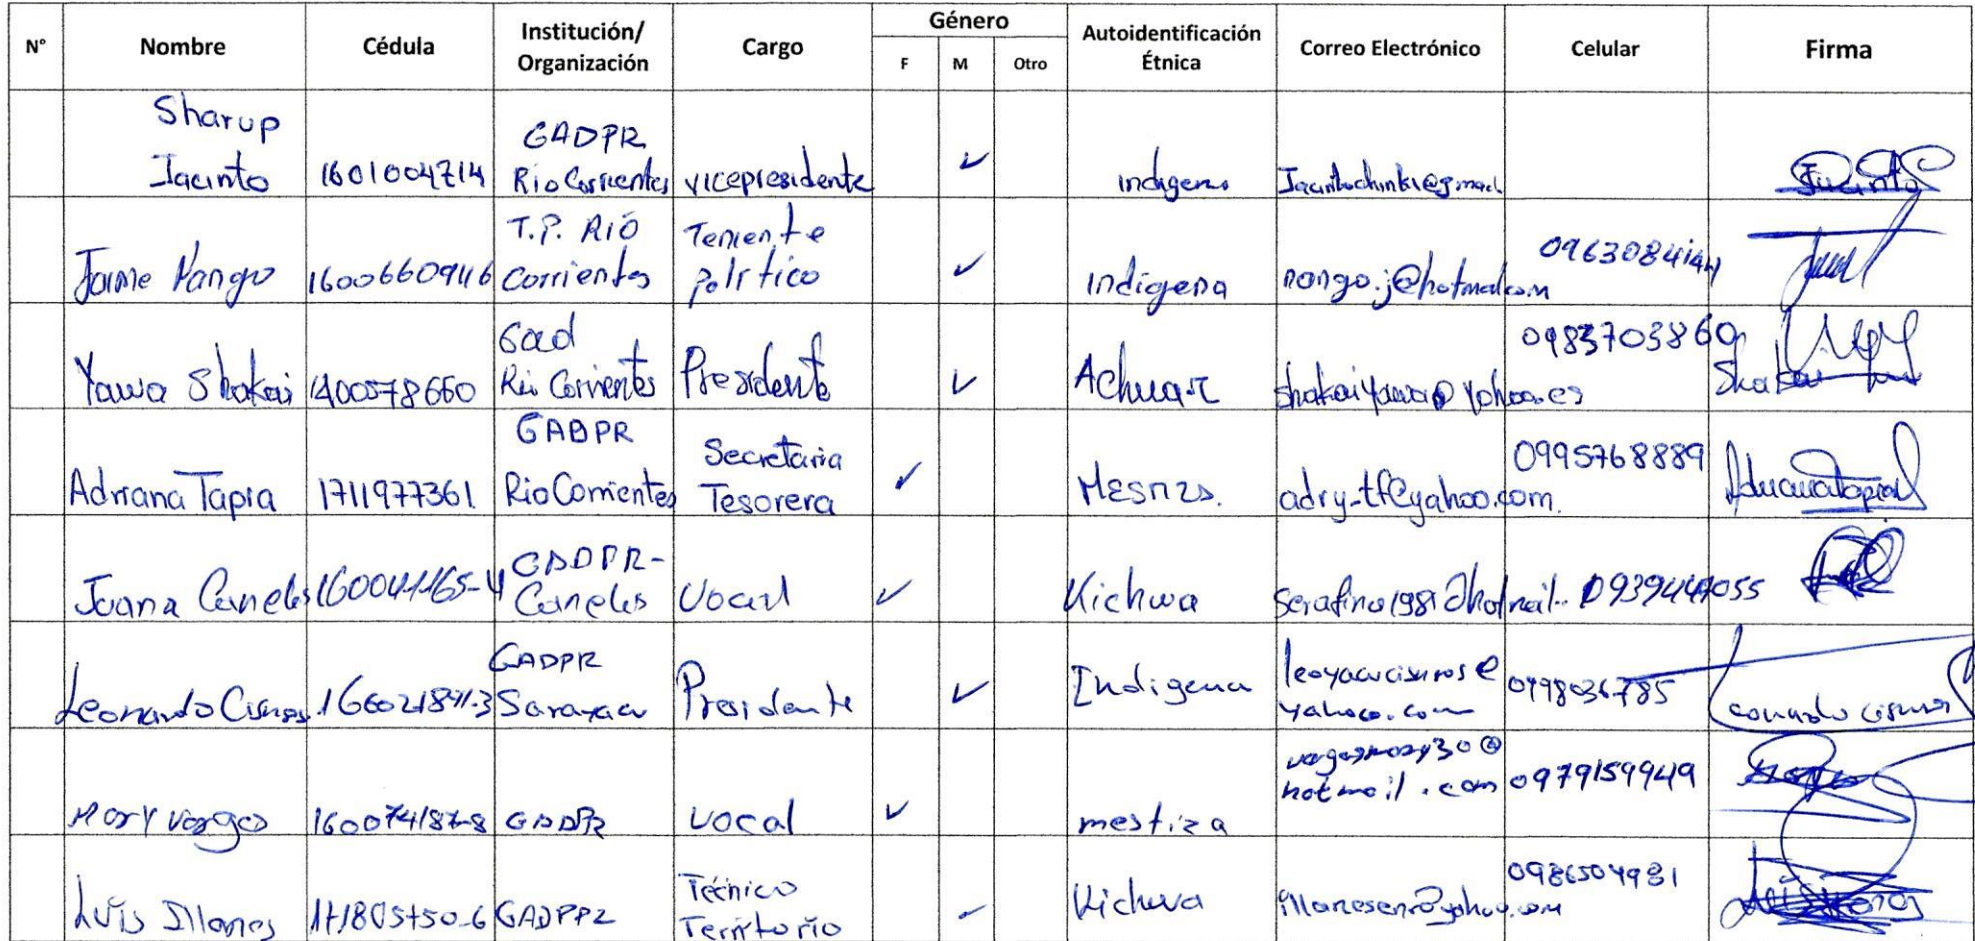 N° Nombre Cédula Institución/ Organización Cargo Género F M Otro Autoidentificación Étnica Correo Electrónico Celular Firma
Sharup Jacinto 1601004714 GADPR Rio Corrientes vicepresidente ✓ indigena Jacinto
Jaime Nango 1600660946 T.P. RIO Corrientes Teniente político ✓ Indigena nango.j@hotmail.com
Yawa Shakai 1400578660 Gad Rio Corrientes Presidente ✓ Achuar shakaiyawa@yahoo.es 0983703860 Shakai
Adriana Tapia 1711977361 GADPR Rio Corrientes Secretaria Tesorera ✓ adry-tf@yahoo.com. 0995768889 Adriana Tapia
Joana Canelos GADPR- Canelos Vocal ✓ Kichwa
Leonardo Cisneros GADPR Sarayacu Presidente ✓ Indigena leoyacucisneros@ yahoo.com 0998036785 Leonardo Cisneros
Mary vargas GADPR vocal ✓ mestiza hotmail.com 0979159949
Luis Illanes GADPPz Técnico Territorio ✓ Kichwa 0986504981